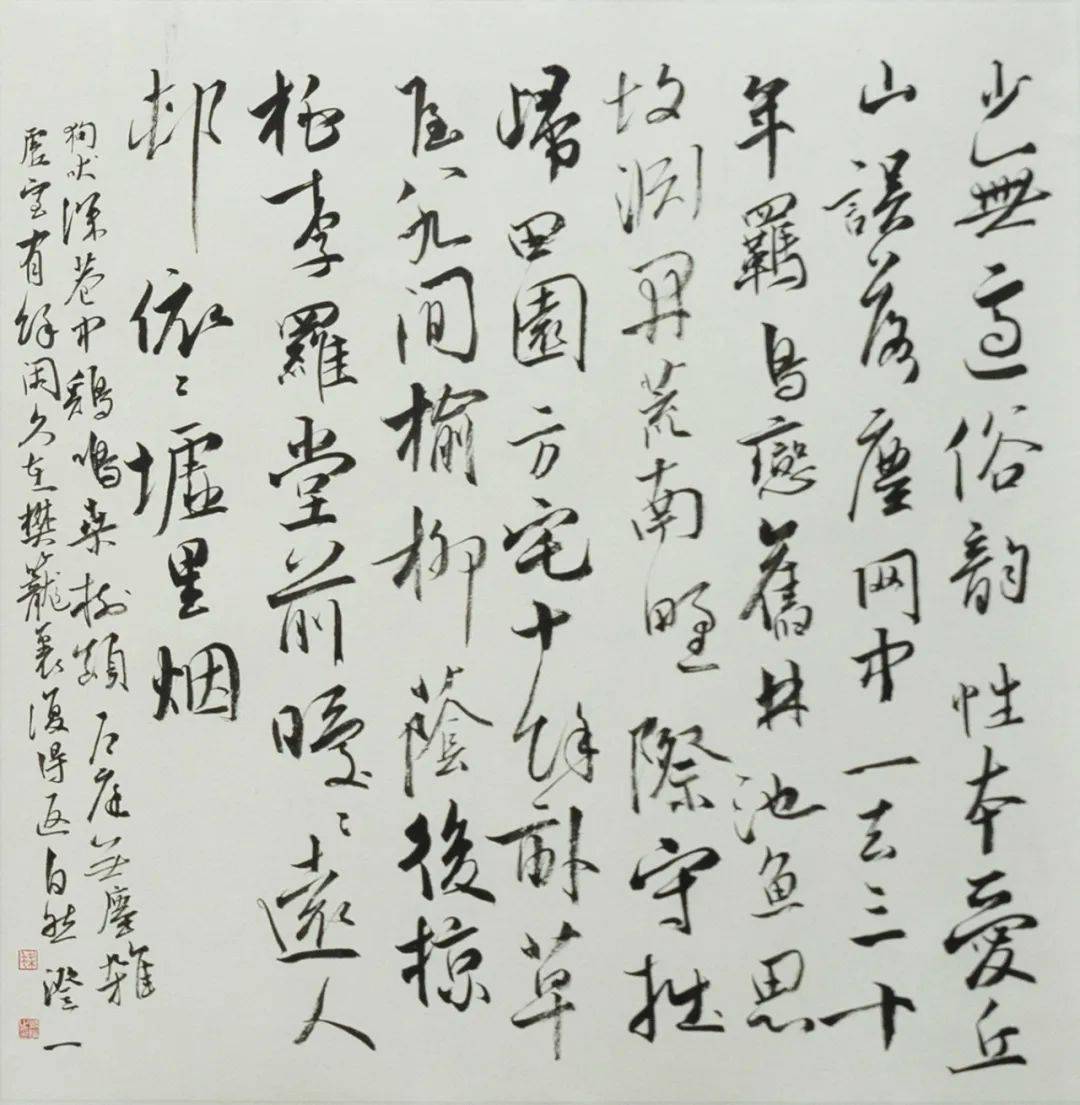 少無適俗韵性本愛丘
山誤落塵网中一去三十
年羈鳥戀舊林池魚思
故渊開荒南野際守拙
歸田園方宅十餘畝草
屋八九間榆柳蔭後椋
桃李羅堂前曖〻遠人
邨依〻墟里烟
狗吠深巷中鷄鳴桑树顛户庭無塵雜
虚室有餘闲久在樊籠裏復得返自然 澄一